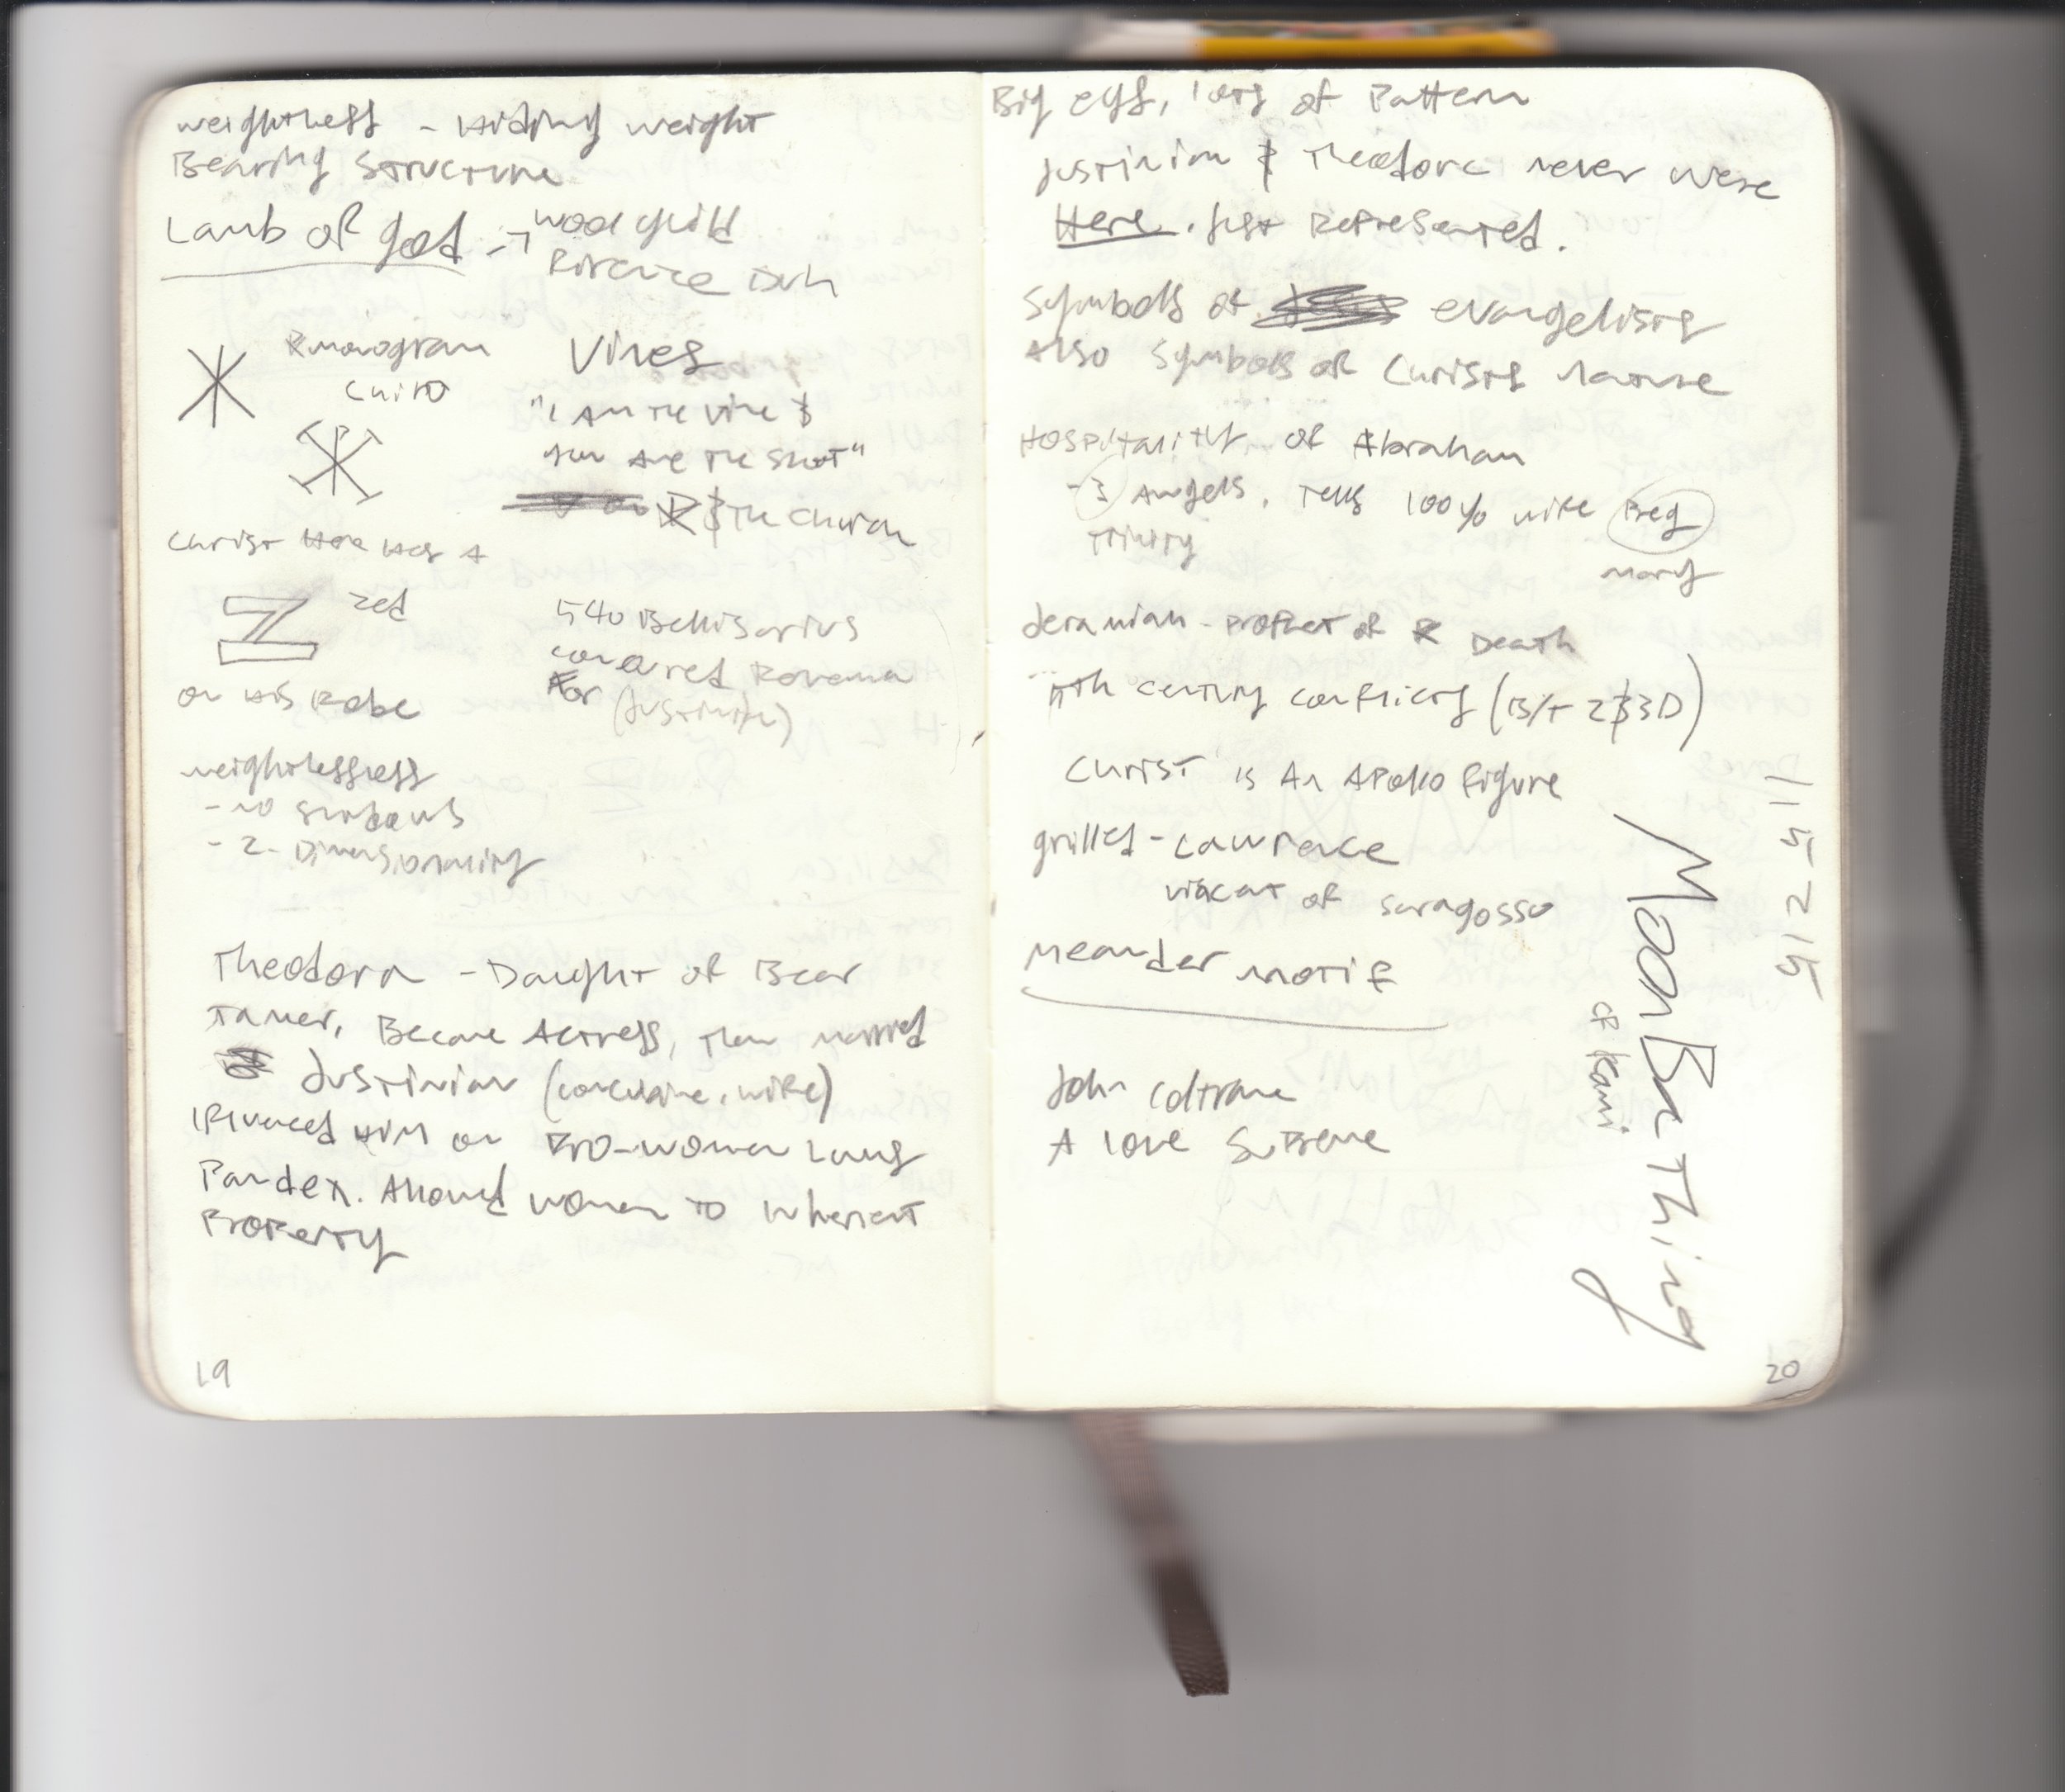 weightless - Hiding weight
Bearing Structure
Lamb of god -> wool guild
Firenze Duh
monogram
Christ
Vines
"I Am the vine &
you are the shoot"
& The Church
Christ Here Has A
Z zed
on His Robe
540 Bellisarius
Ravenna
For (Justinian)
weightlessness
- no shadows
- 2-Dimensionality
Theodora - Daught of Bear
Tamer, Became Actress, then married
Justinian (concubine, wife)
Influenced Him on Pro-women Laws
Pandex. Allowed women to inherient
Property
19
Big eyes, lots of Pattern
Justinian & Theodora never were
Here. Just Represented.
Symbols of evangelists
Also Symbols of Christs Nature
Hospitality of Abraham
- 3 Angels, Tells 100 y/o wife Preg
Trinity
Mary
Jeramiah - Prophet of Death
century conflicts (B/T 2 & 3D)
Christ is An Apollo Figure
grilled - Lawrence
of Saragosso
Meander motif
John Coltrane
A Love Supreme
MoonBeThing
CF Kami
20